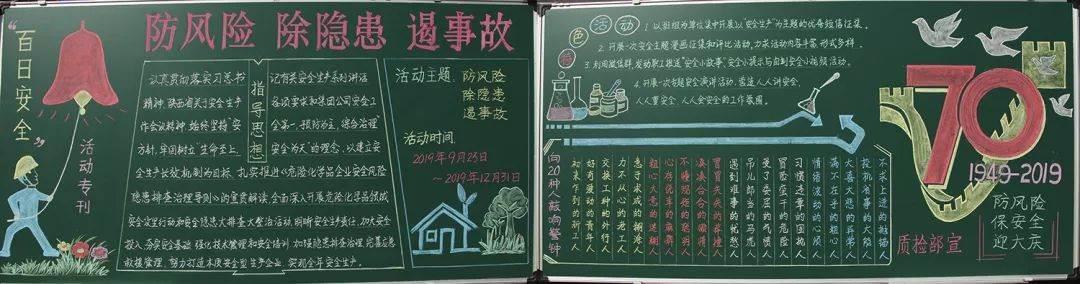 “百日安全”
活动专刊
防风险 除隐患 遏事故
指导思想
认真贯彻落实习总书
记有关安全生产系列讲话
精神，陕西省关于安全生产
各项要求和集团公司安全工
作会议精神，始终坚持“安
全第一，预防为主，综合治理”
方针，牢固树立“生命至上、
安全为天”的理念，以建立安
全生产长效机制为目标，扎实推进《危险化学品企业安全风险
隐患排查治理导则》的宣贯解读，全面深入开展危险化学品领域
安全攻坚行动和安全隐患大排查大整治活动，明晰安全生产责任，加大安全
投入，夯实安全基础，强化技术管理和安全培训，加强隐患排查治理，完善应急
救援管理，努力打造本质安全型生产企业，实现全年安全生产。
活动主题：防风险
除隐患
遏事故
活动时间：
2019年9月23日
～2019年12月31日
特色活动
1. 以班组为单位集中开展以“安全生产”为主题的优秀短信征集。
2. 开展一次安全主题漫画征集和评比活动，力求活动内容丰富，形式多样。
3. 利用微信群，发动职工推送“安全小故事”、安全小提示与自制安全小视频活动。
4. 开展一次专题安全演讲活动，营造人人讲安全，
人人重安全，人人会安全的工作氛围。
向20种人敲响警钟
初来乍到的新工人
好奇爱动的青年人
变换工种的外行人
力不从心的老工人
急于求成的糊涂人
粗心大意的马虎人
心存侥幸的麻痹人
不懂规矩的聪明人
凑凑合合的懒惰人
冒冒失失的莽撞人
遇到难事的忧愁人
吊儿郎当的马虎人
受了委屈的气愤人
冒险蛮干的危险人
习惯违章的固执人
情绪波动的心烦人
满不在乎的粗心人
大喜大悲的异常人
投机省事的大胆人
不求上进的抛锚人
70
1949-2019
防风险
保安全
迎大庆
质检部宣